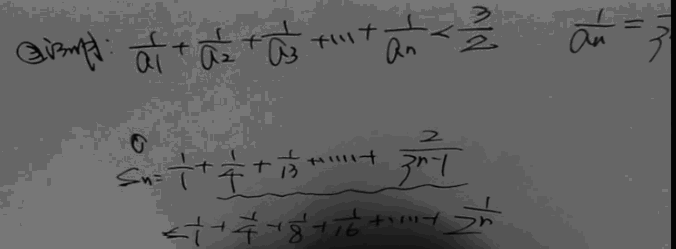 ②证明: 1/a1 + 1/a2 + 1/a3 + ... + 1/an < 3/2   1/an =
①
Sn = 1/1 + 1/4 + 1/13 + ...... + 2/(3^n-1)
< 1/1 + 1/4 + 1/8 + 1/16 + ...... + 1/2^n